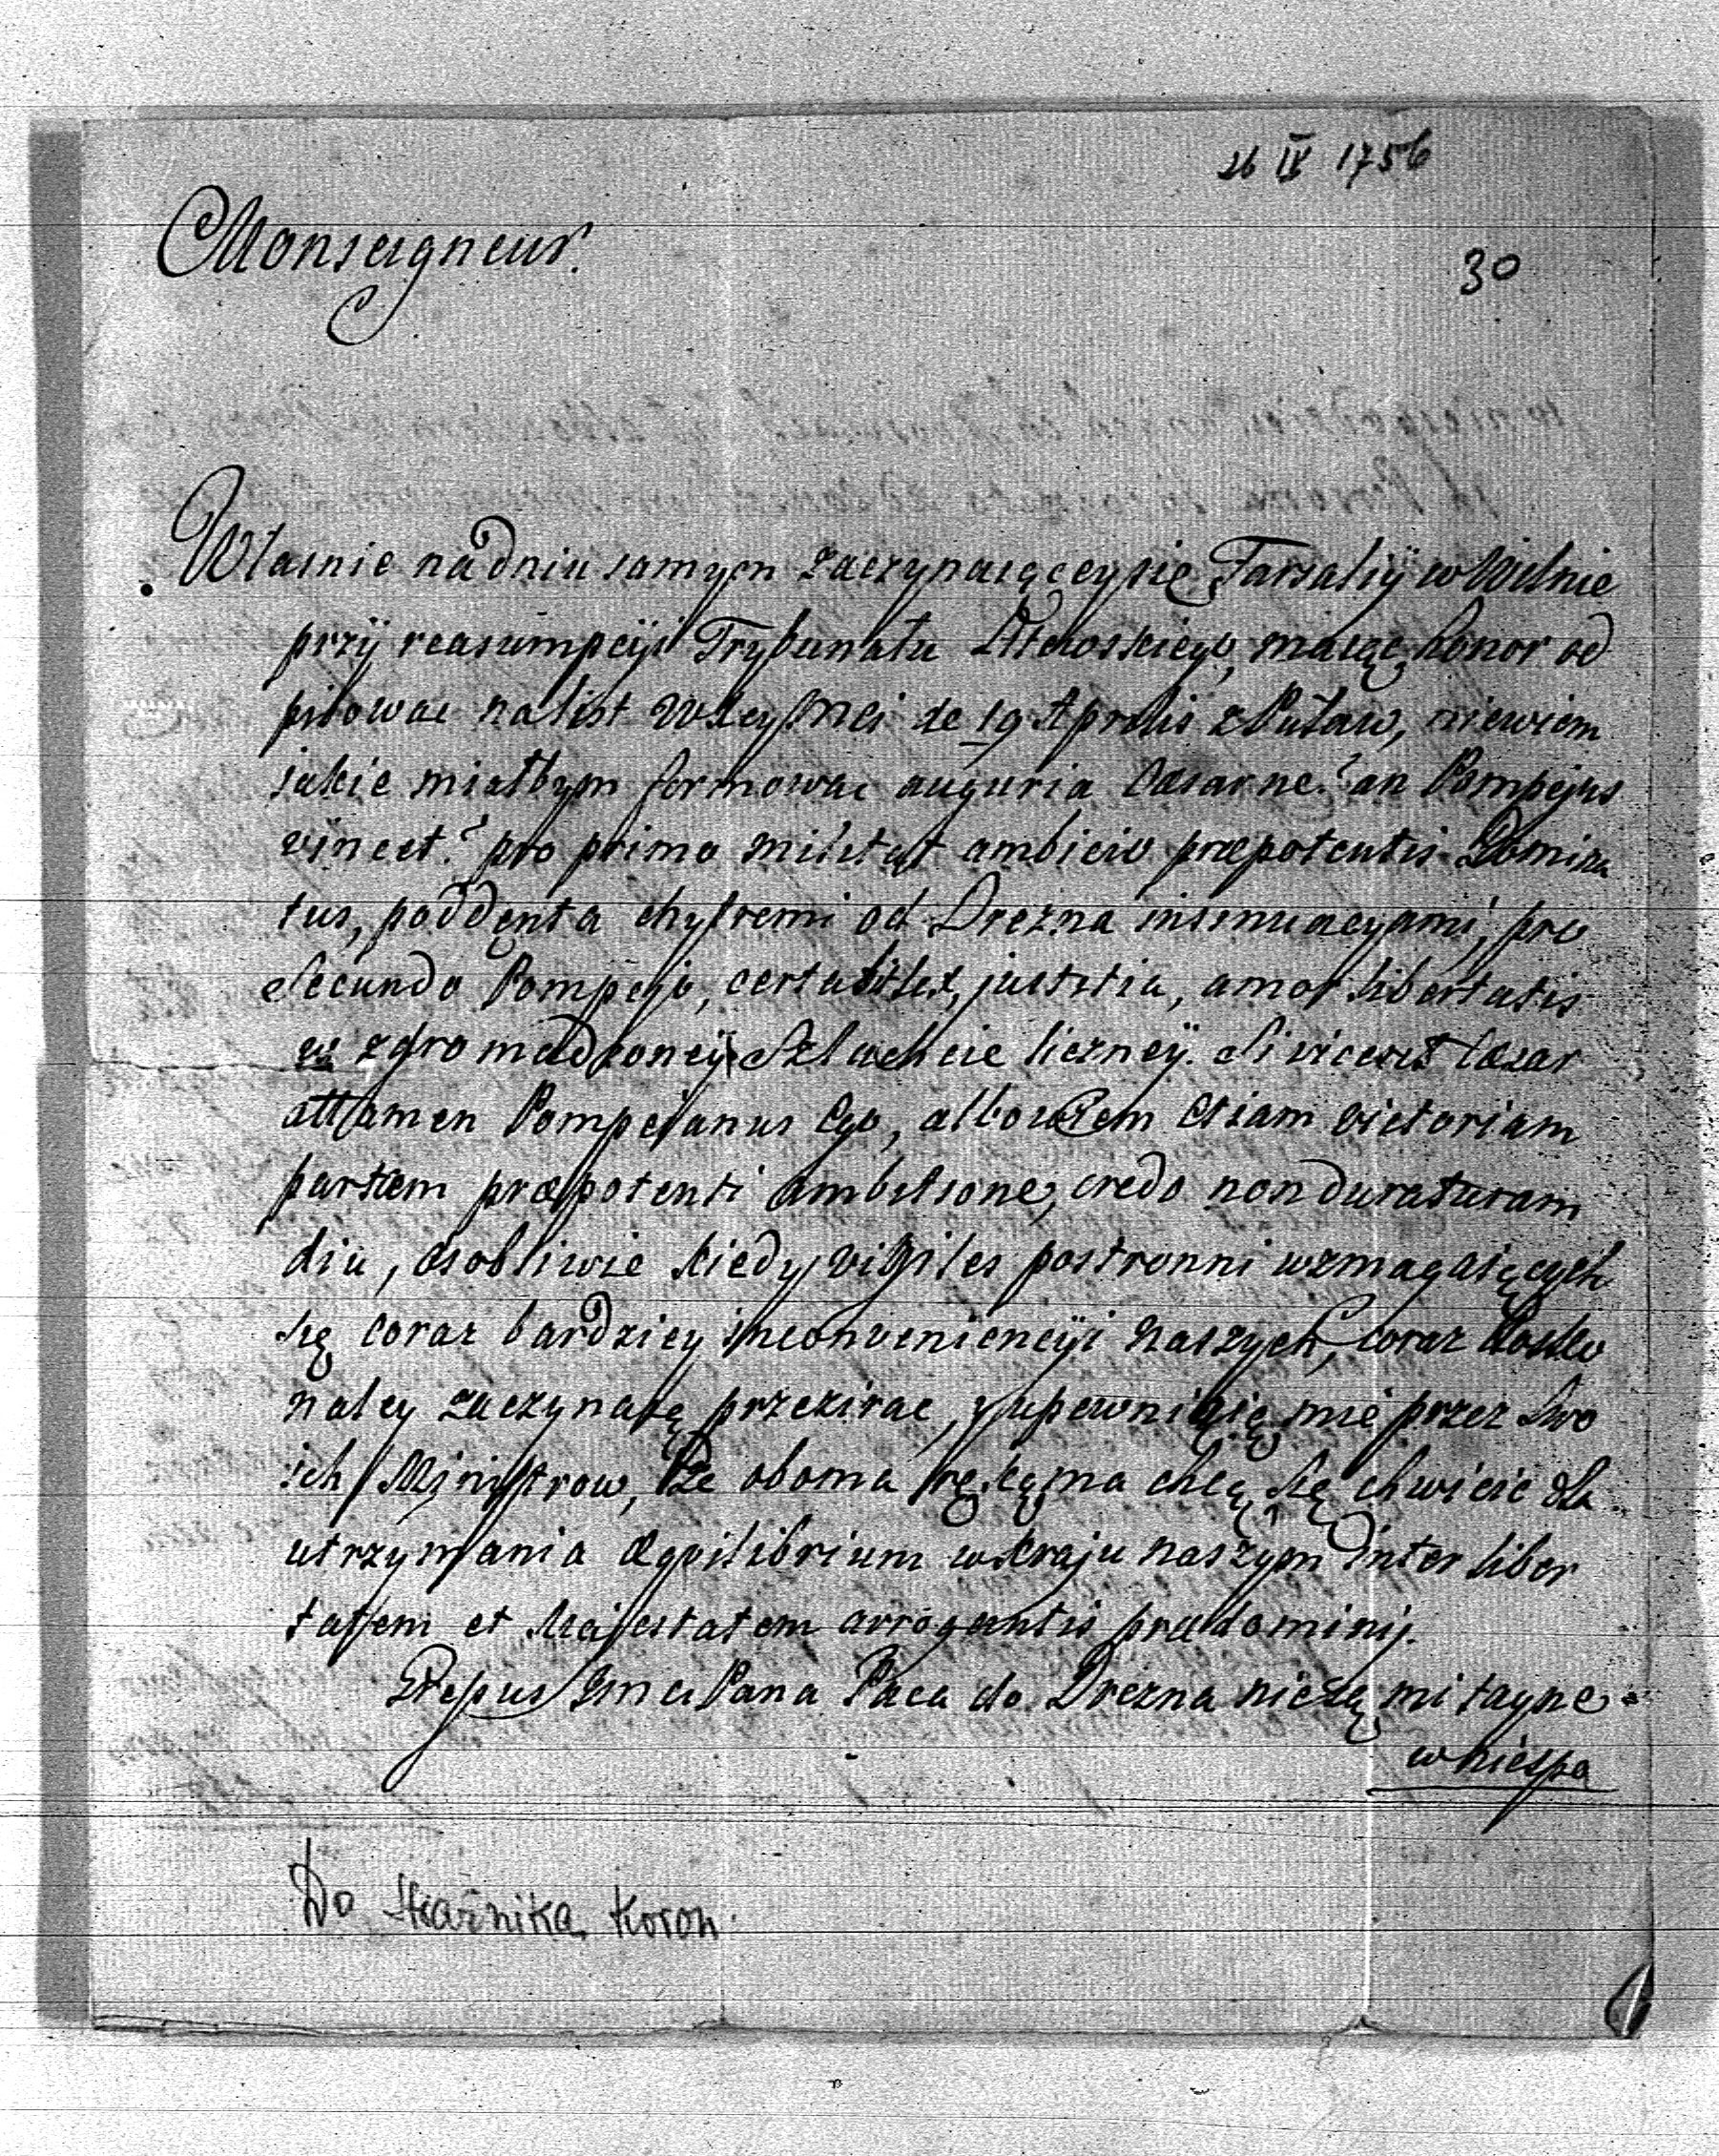 26 IV 1756
Monseigneur.
30
Własnie nadniu samym zaczynaiącey się Farsalij w Wilnie
przÿ reasumpcÿi Trybunału Littewoskiego, maiąc honor od
pisowac na list WXcyMci de 19 Aprilis z Puław, niewiem
iakie miałbym formowac auguria Cæsar ne? an Pompejus
vincet? pro primo militat ambicio præpotentis Domina
tus, poddęnta chytremi od Drezna insinuacyami, pro
Secundo Pompejo, certabit lex, justitia, amor libertatis
w zgromadzoneÿ Szlachcie liczneÿ. Si vicerit Cæzar
attamen Pompeianus Ego, albowiem Etiam victoriam
partem præpotenti ambitione, credo non duraturam
diu, osobliwie kiedy vigiles postronni wzmagaiących
się coraz bardziey inconveniencÿi naszych, coraz dosko
naley zaczynaią przezirac, y upewniaią mie przez Swo
ich Ministrow, że oboma rękąma chcą się chwicic dla
utrzymania æqvilibrium w kraju naszym inter liber
tatem et Majestatem arrogantis prædominij.
Przepus Jmci Pana Paca do Drezna nie są mi tayne
w niespo
Do Strażnika Koron.